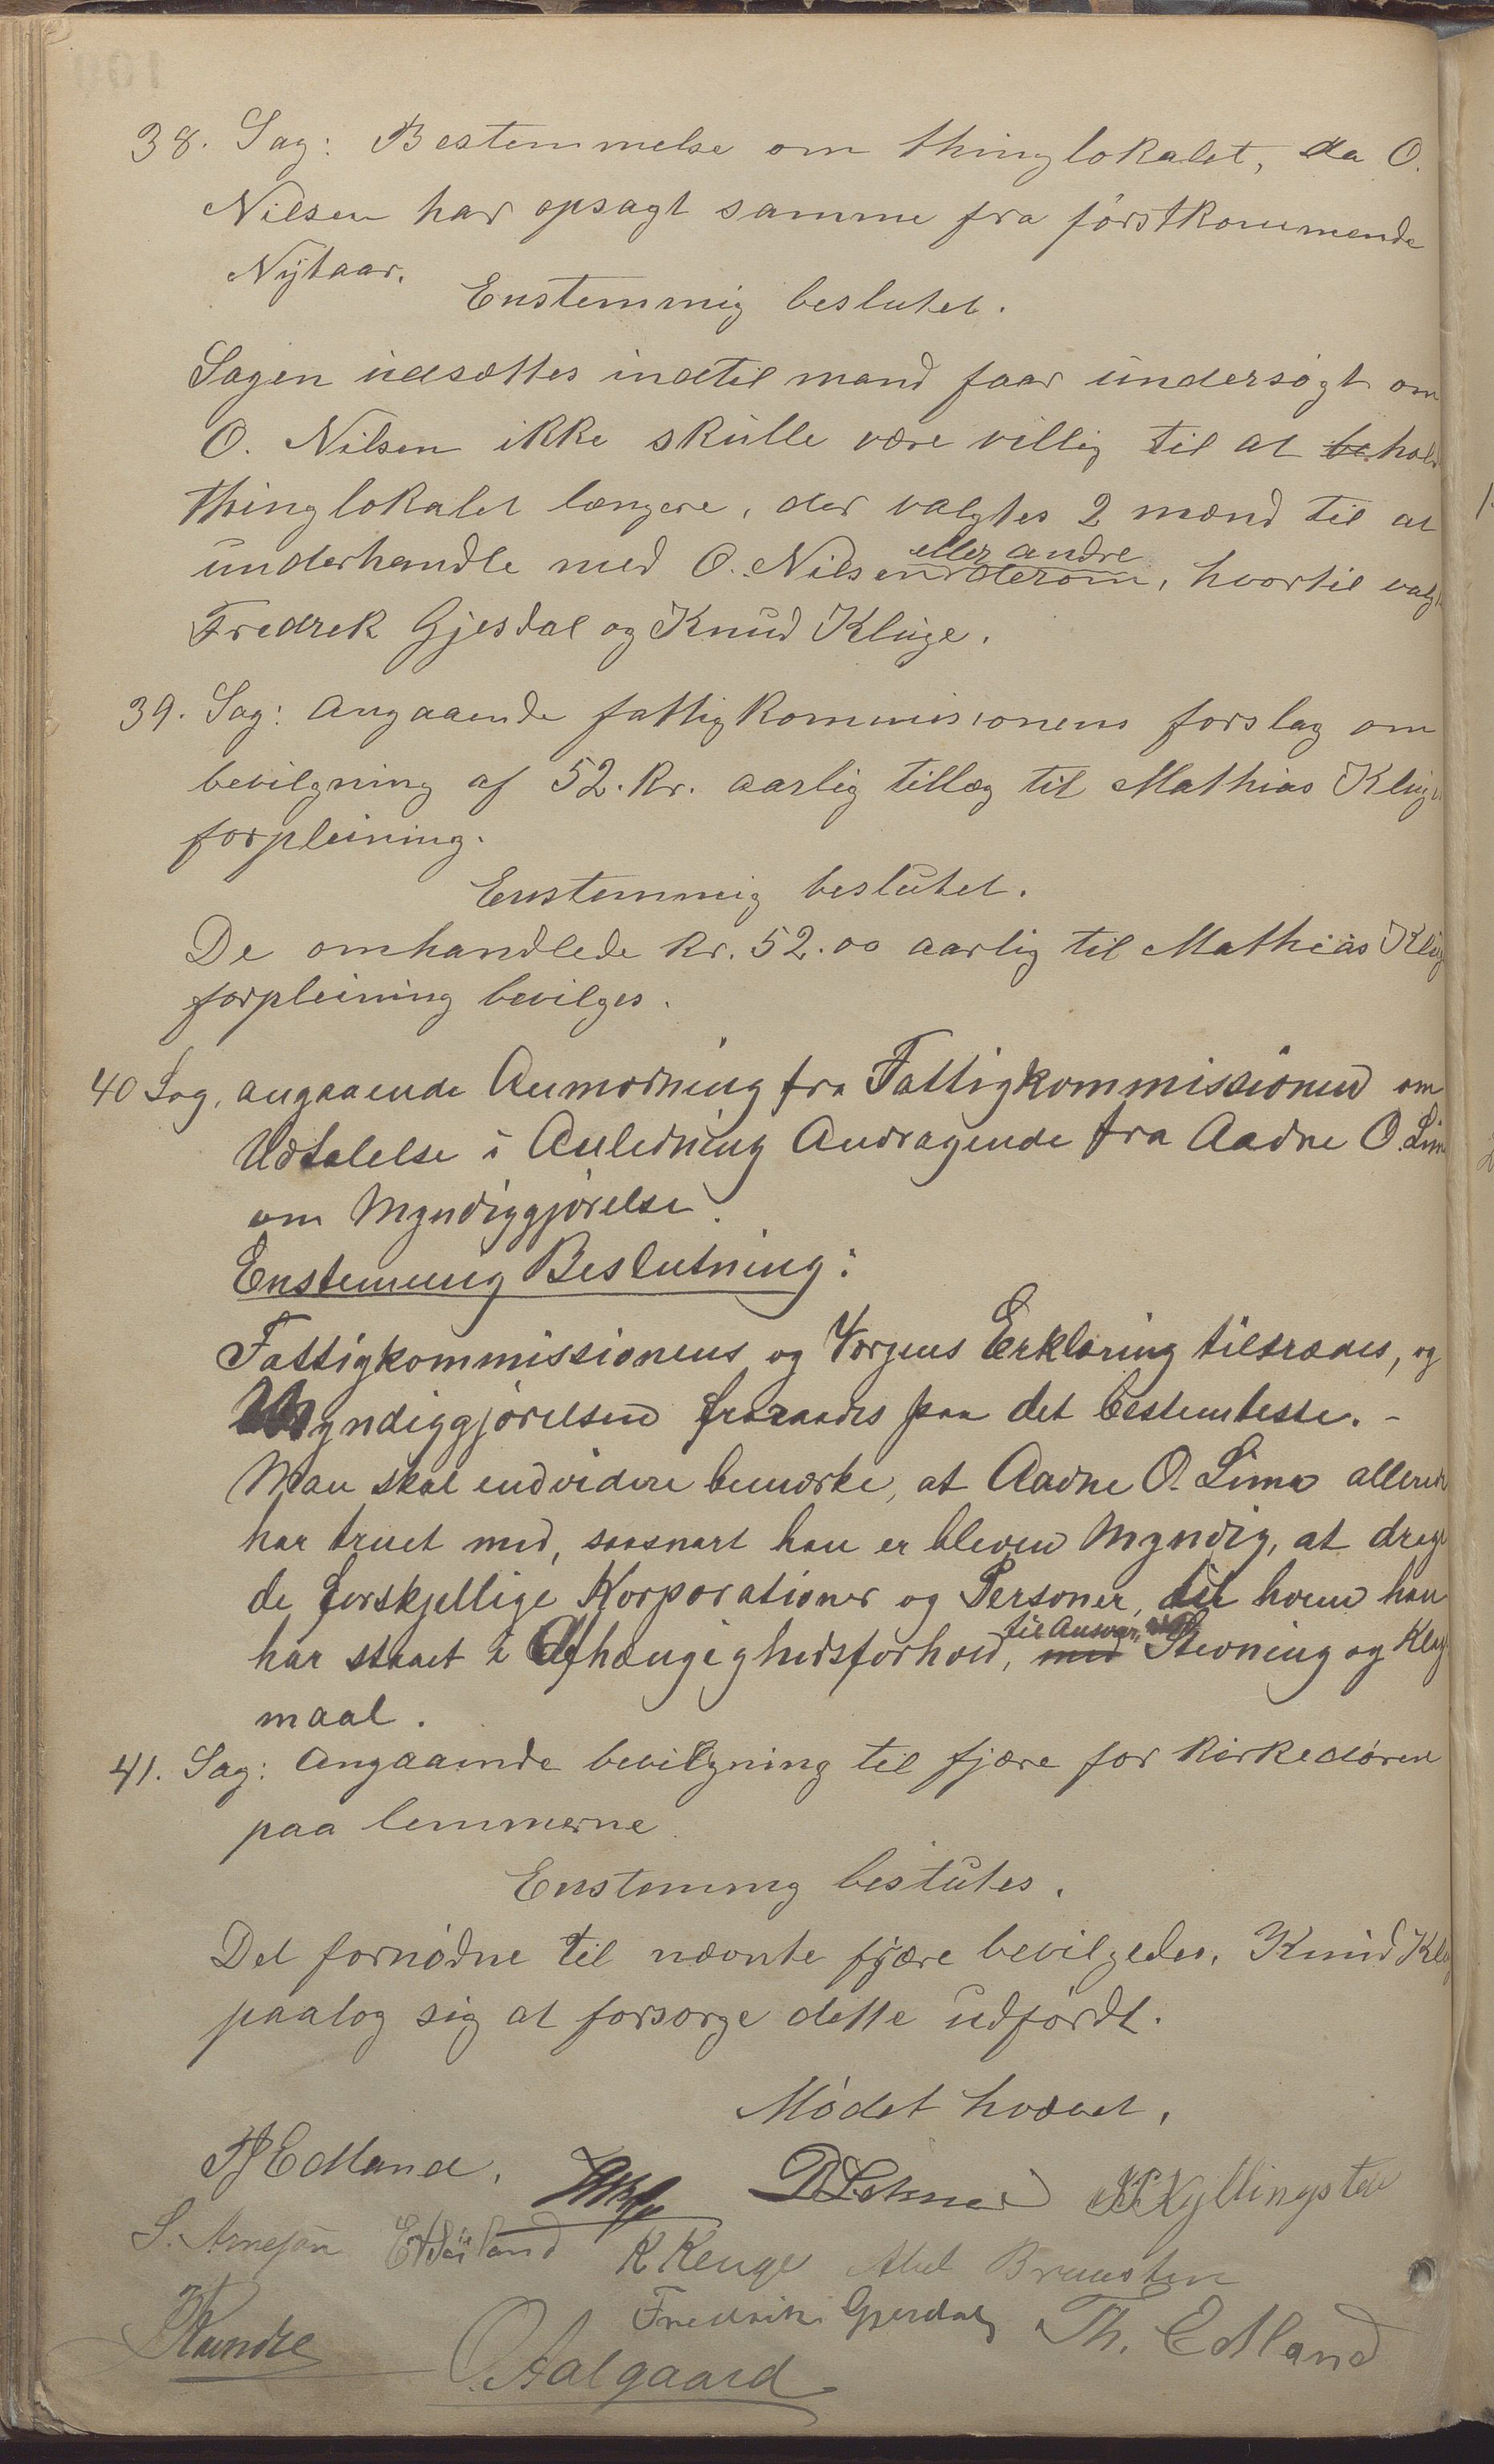 38. Sag: Bestemmelse om thinglokalet, da O.
Nilsen har opsagt samme fra førstkommende
Nytaar.
Enstemmig beslutet.
Sagen udsættes indtil mand faar undersøgt om
O. Nilsen ikke skulle være villig til at be hold
thinglokalet længere, der valgtes 2 mænd til at
eller andre
underhandle med O. Nilsen derom, hvortil valg
Fredrek Gjesdal og Knud Kluge.
39. Sag: Angaaende fattigkommisionens forslag om
bevilgning af 52. kr. aarlig tillæg til Mathias Klug
forpleining.
Enstemmig beslutet.
De omhandlede kr. 52.00 aarlig til Mathias Klug
forpleining bevilges.
40 Sag, angaaende Anmodning fra Fattigkommissionen om
Udtalelse i Anledning Andragende fra Aadne O. Lima
om Myndiggjørelse.
Enstemmig Beslutning:
Fattigkommissionens og Vergens Erklæring tiltrædes, og
Myndiggjørelsen fraraades paa det bestemteste. -
Man skal endvidere bemærke, at Aadne O. Lima allerede
har truet med, saasnart han er bleven Myndig, at drage
de forskjellige Korporationer og Personer, til hvem han
til Ansvar, ved
har staaet i Afhængighedsforhold, med Stevning og Klage
maal.
41. Sag: Angaaende bevilgning til fjære for kirkedøren
paa lemmerne
Enstemmig beslutes.
Det fornødne til nævnte fjære bevilgedes. Knud Klu
paatog sig at forsørge dette udfördt.
Mødet hævet.
Edland.
S. Arnesen
K Kluge Abel Braasten
Fredrik Gjesdal Th. Edland
O. Aalgaard